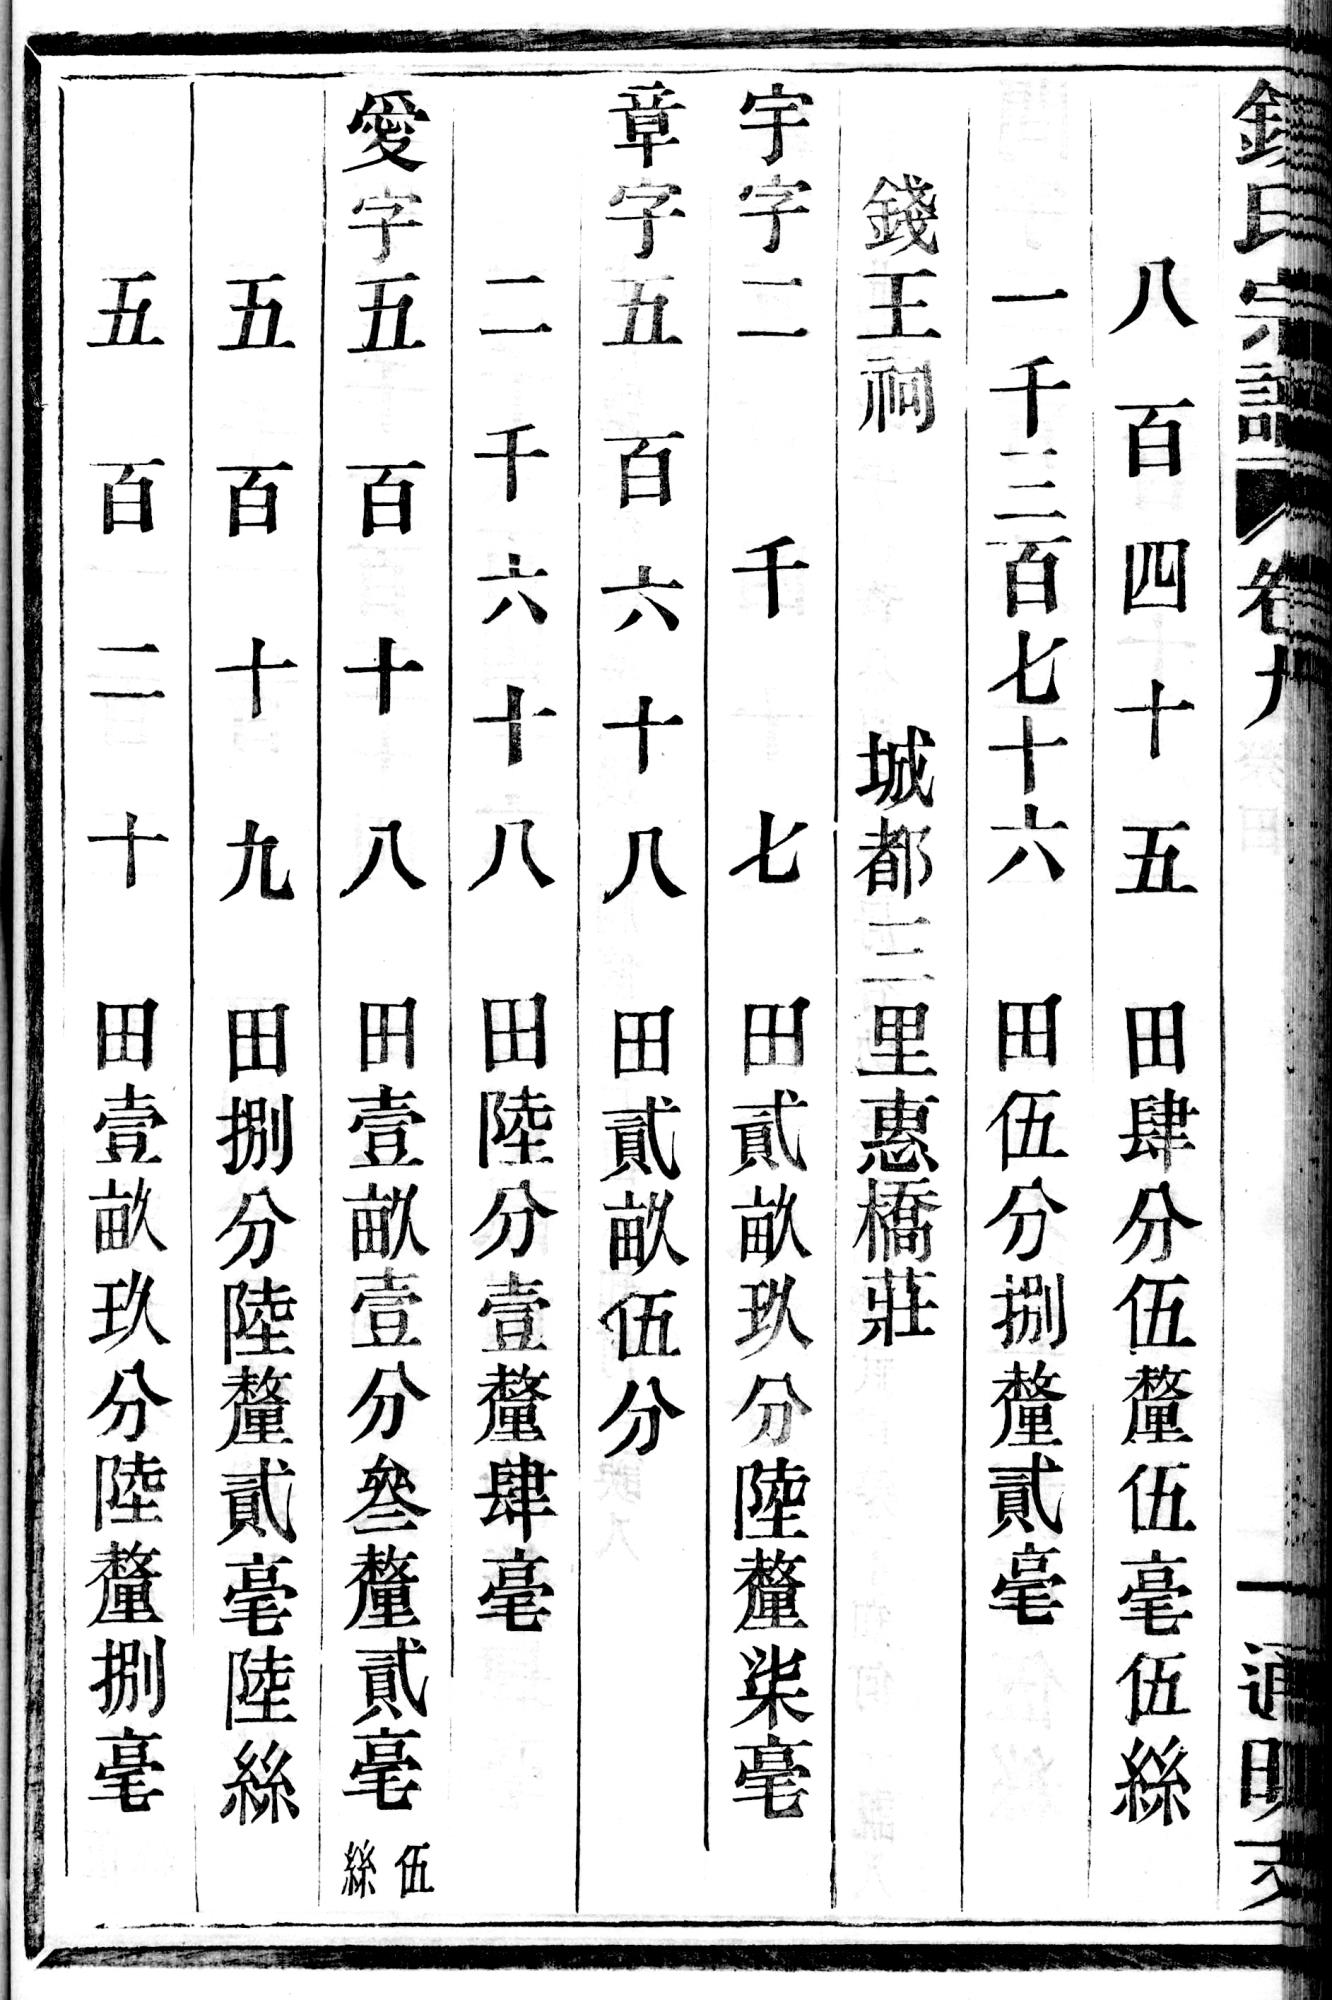 錢氏宗譜 卷九 一 通明
八百四十五 田肆分伍釐伍毫伍絲
一千三百七十六 田伍分捌釐貳毫
錢王祠 城都三里惠橋莊
宇字二千七 田貳畝玖分陸釐柒毫
章字五百六十八 田貳畝伍分
二千六十八 田陸分壹釐肆毫
愛字五百十八 田壹畝壹分叄釐貳毫伍絲
五百十九 田捌分陸釐貳毫陸絲
五百二十 田壹畝玖分陸釐捌毫